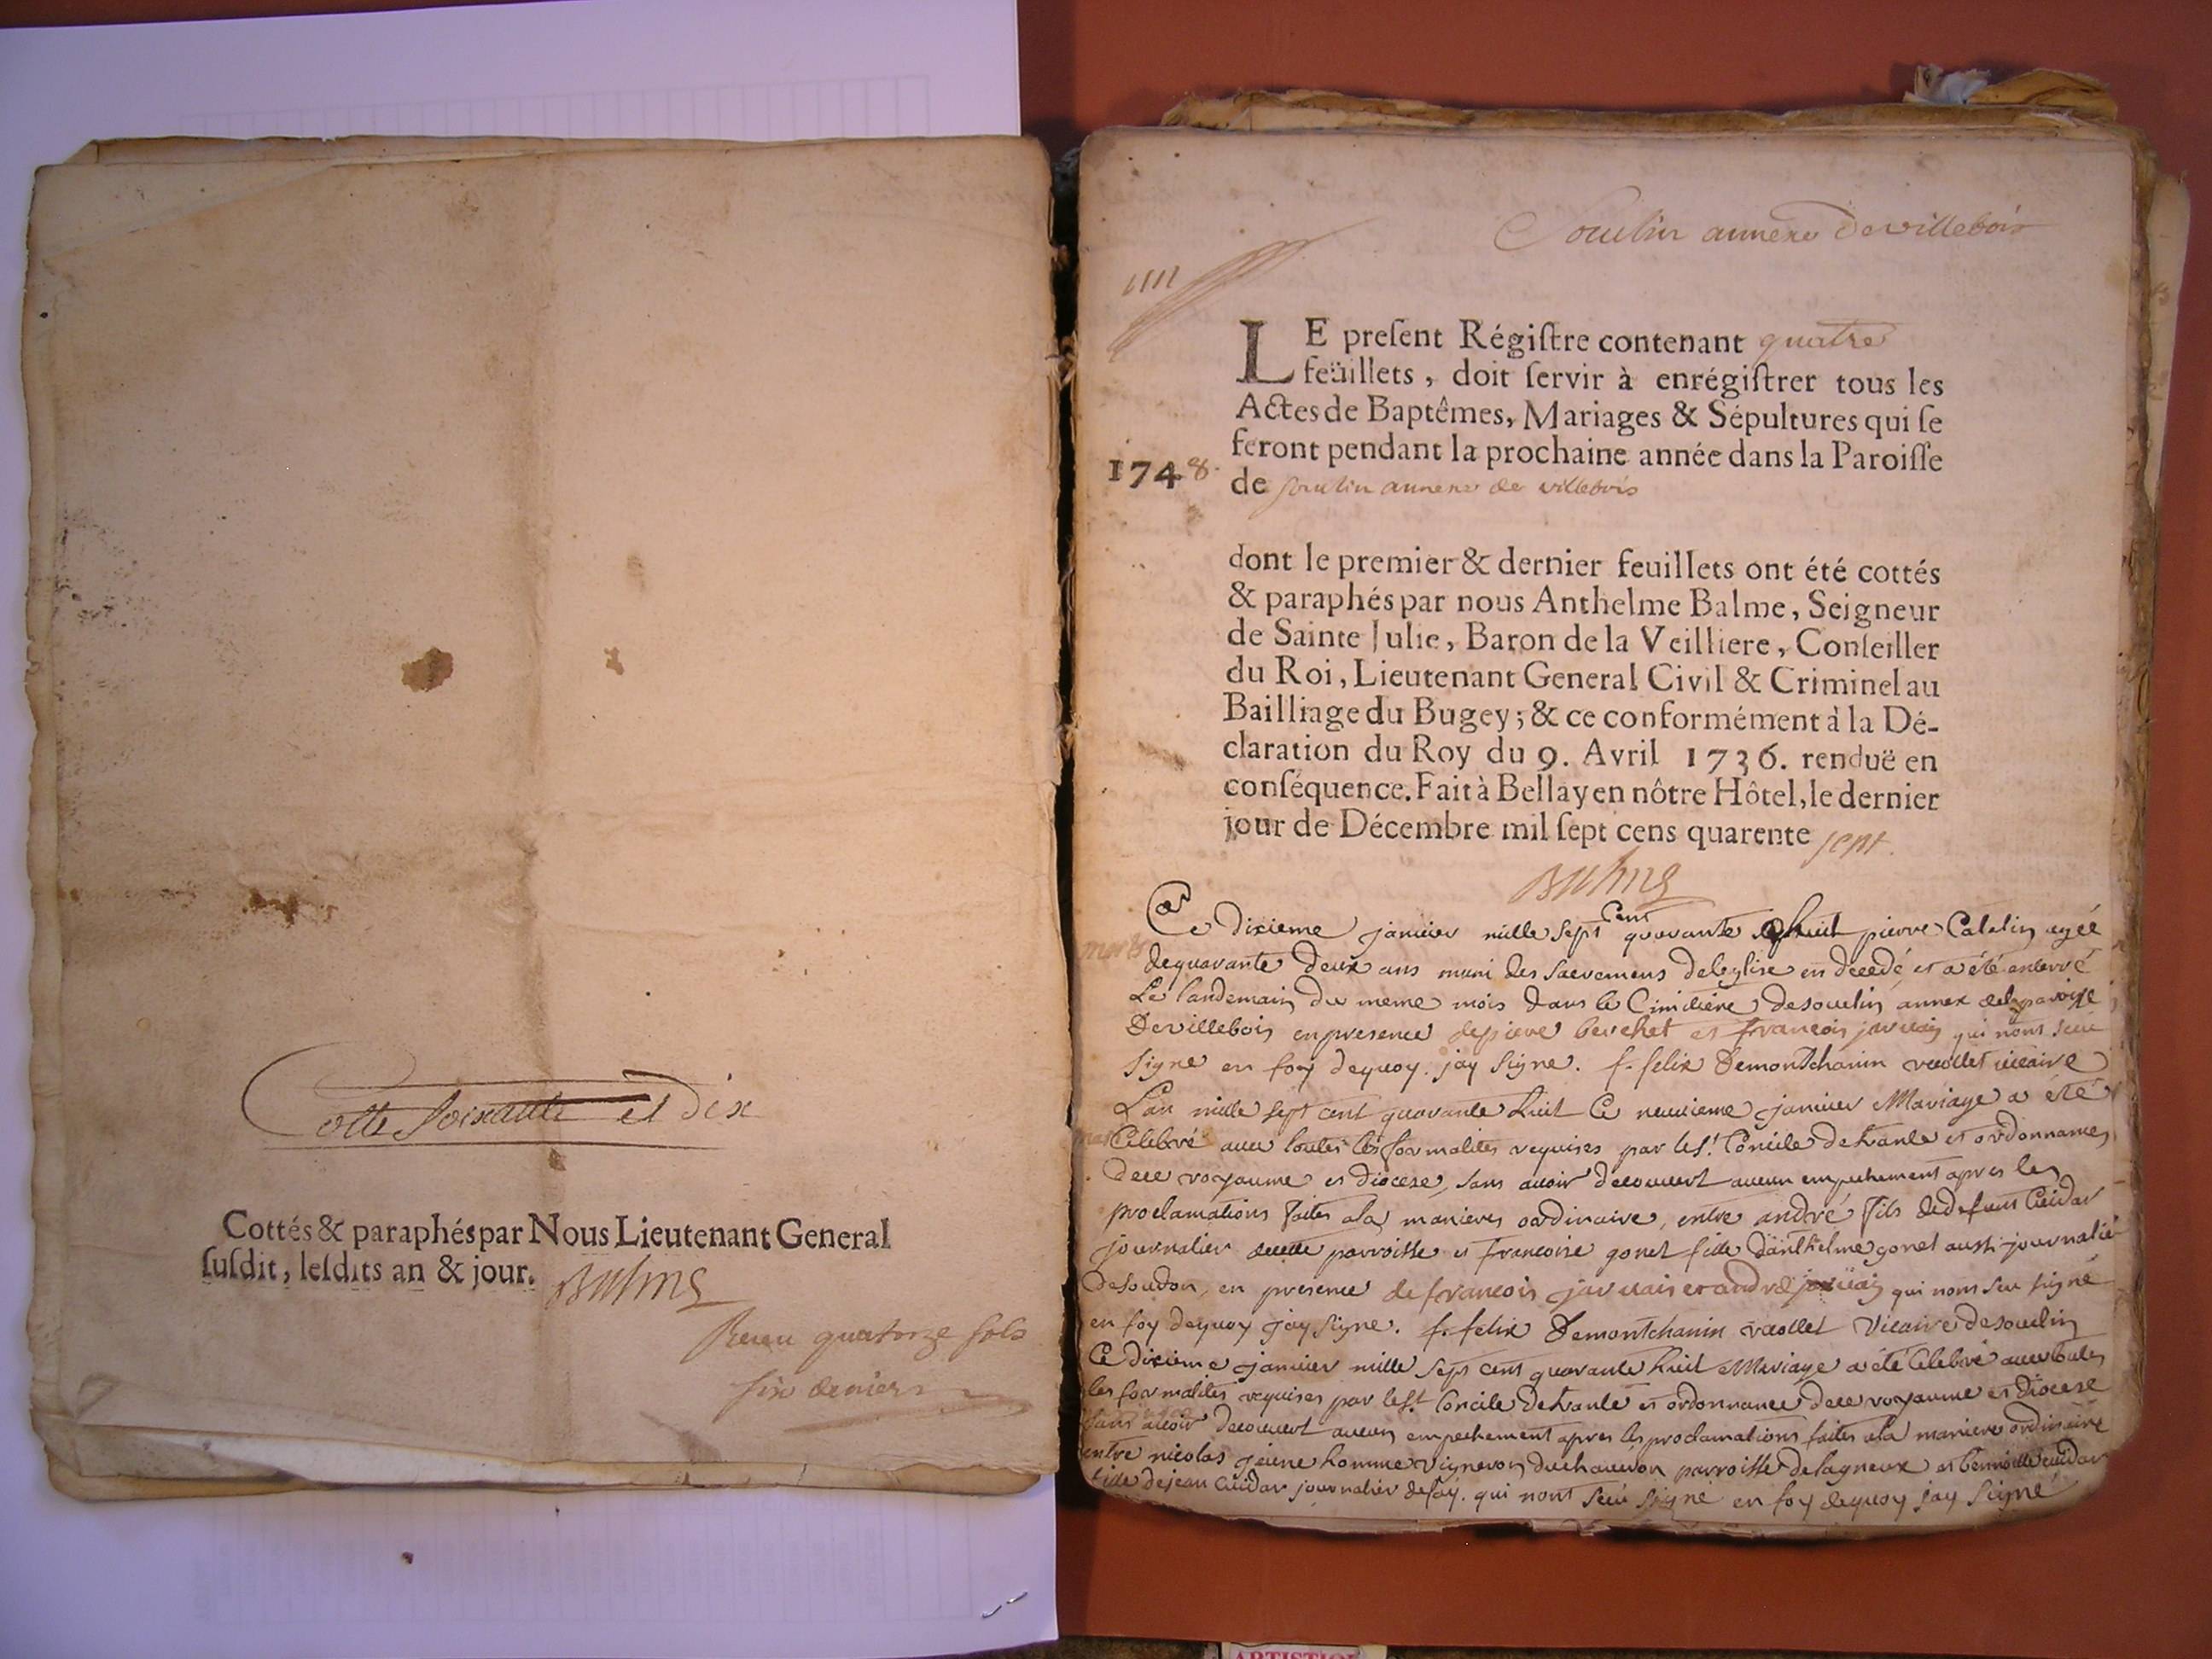 Cotte Soixante et dix
Cottés & paraphés par Nous Lieutenant General
susdit, lesdits an & jour. Balme
Receu quatorze sols
six deniers
Soulin annexe de villebois
LE present Régistre contenant quatre
feüillets, doit servir à enrégistrer tous les
Actes de Baptêmes, Mariages & Sépultures qui se
feront pendant la prochaine année dans la Paroisse
1748.
de soulin annexe de villebois
dont le premier & dernier feuillets ont été cottés
& paraphés par nous Anthelme Balme, Seigneur
de Sainte Julie, Baron de la Veilliere, Conseiller
du Roi, Lieutenant General Civil & Criminel au
Bailliage du Bugey; & ce conformément à la Dé-
claration du Roy du 9. Avril 1736. renduë en
conséquence. Fait à Bellay en nôtre Hôtel, le dernier
jour de Décembre mil sept cens quarente sept.
Balme
Ce dixieme janvier mille sept cent quarante huit pierre Catelin agée
de quarante deux ans muni des sacremens de leglise en decedé et a été enterré
Le landemain du meme mois dans le Cimitiere de soulin annex de la paroisse
De villebois en presence de piere berchet et francois jarvais qui nont seu
signe en foy de quoy jay signe. f. felix Demontchanin recollet vicaire
L'an mille sept cent quarante huit Ce neuvieme janvier Mariage a été
Celebré avec toutes les formalites requises par le St Concile de trante et ordonnances
de ce royaume et diocese, sans avoir decouvert aucun empechement apres les
proclamations faites a la maniere ordinaire, entre andré fils de defunt Cuidar
journalier parroisse et francoise gonet fille d'anthelme gonet aussi journalié
De soudon, en presence de francois jarvais et andre qui nont seu signé
en foy de quoy jay signe. f. felix Demontchanin recollet Vicaire de soulin
Ce dixieme janvier mille sept cent quarante huit Mariage a été Celebré avec toutes
les formalites requises par le St Concile de trante et ordonnance de ce royaume et Diocese
sans avoir decouvert aucun empechement apres les proclamations faites a la maniere ordinaire
entre nicolas jeune homme vigneron parroisse de lagneux et Cuidar
fille de jean Cuidar journalier de qui nont seu signé en foy de quoy jay signé